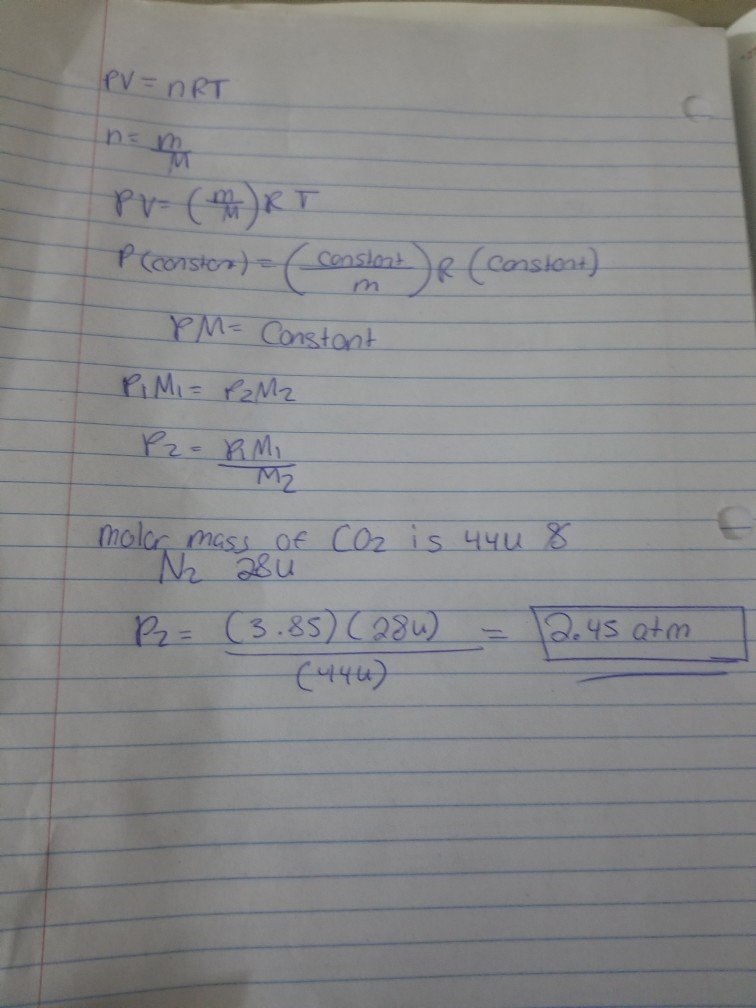 PV = nRT
n = m/M
PV = (m/M) R T
P (constor) = (constant/m) R (constant)
PM = Constant
P1M1 = P2M2
P2 = P1M1/M2
molar mass of CO2 is 44u &
N2 28u
P2 = (3.85)(28u)/(44u) = 2.45 atm